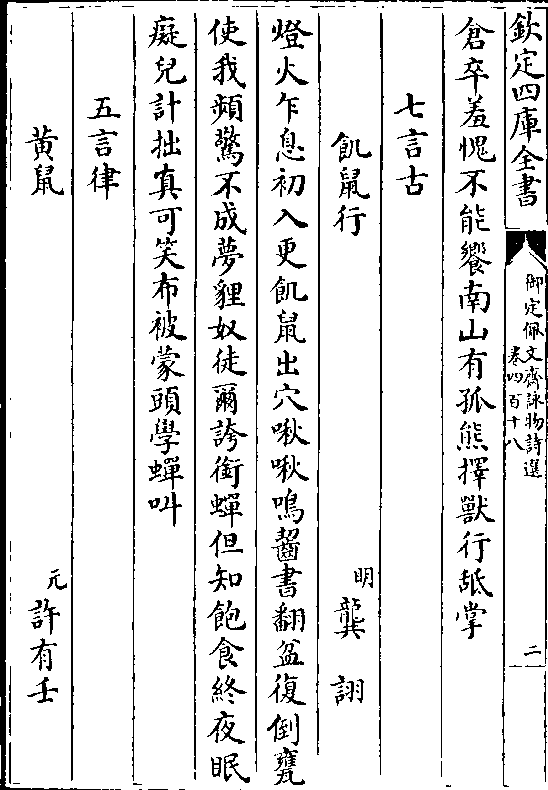 欽定四庫全書
御定佩文齋詠物詩選
卷四百十八
二
倉卒羞愧不能饗南山有孤熊擇獸行舐掌
七言古
飢鼠行
明 龔 詡
燈火乍息初入更飢鼠出穴啾啾鳴齧書翻盆復倒甕
使我頻驚不成夢貍奴徒爾誇銜蟬但知飽食終夜眠
癡兒計拙真可笑布被蒙頭學蟬叫
五言律
黄鼠
元 許有壬